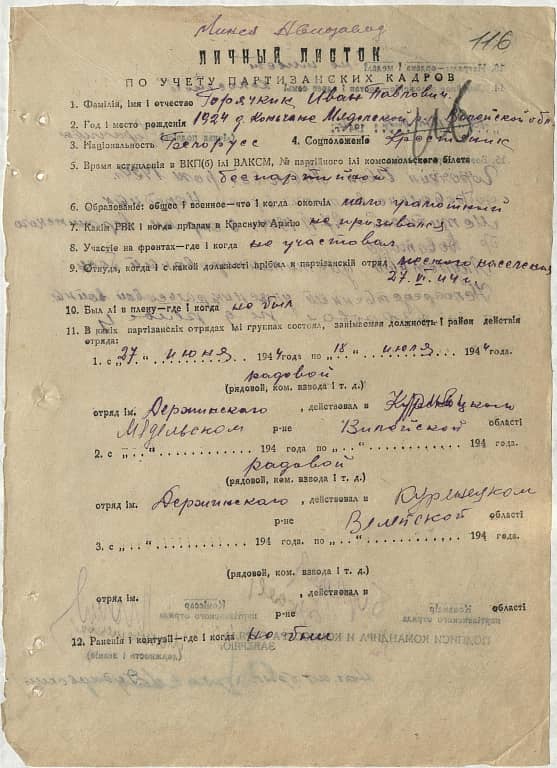 Минск Авиозавод
116
ЛИЧНЫЙ ЛИСТОК
ПО УЧЕТУ ПАРТИЗАНСКИХ КАДРОВ
1. Фамілія, імя і отчество Горячкик Иван Павлович
2. Год і место рождения 1924 д. Мядельской р-н Вилейской обл.
3. Національность Белорусс 4. Соцположеніе Крестьяник
5. Время вступленія в ВКП(б) ілі ВЛКСМ, № партійного ілі комсомольского білета
беспартийной
6. Образованіе: общее і военное—что і когда окончіл мало грамотный
7. Какім РВК і когда прізван в Красную Армію не призывался
8. Участіе на фронтах—где і когда не участвовал
9. Откуда, когда і с какой должності прібыл в партізанскій отряд местного населения
27. VI. 44 г.
10. Был лі в плену—где і когда не был
11. В какіх партізанскіх отрядах ілі группах состоял, занімаемая должность і район действія
отряда:
1. с „27“ июня 1944 года по „18“ июля 1944 года.
радовой
(рядовой, ком. взвода і т. д.)
отряд ім. Держинского, действовал в
Медельском р-не Вилейской області
2. с „..“ 194 года по „..“ 194 года.
радовой
(рядовой, ком. взвода і т. д.)
отряд ім. Держинского, действовал в
р-не Вилейской області
3. с „..“ 194 года по „..“ 194 года.
(рядовой, ком. взвода і т. д.)
отряд ім. , действовал в
р-не області
12. Раненія і контузіі—где і когда не был